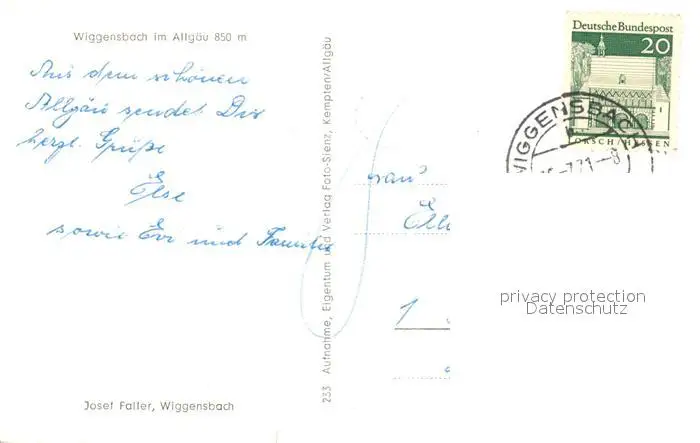 Wiggensbach im Allgäu 850 m
Aus dem schönen
Allgäu sendet Dir
herzl. Grüße
Else
sowie Evi und Familie
Josef Faller, Wiggensbach
233 Aufnahme, Eigentum und Verlag Foto-Sienz, Kempten/Allgäu
Deutsche Bundespost
20
LORSCH/HESSEN
WIGGENSBACH
privacy protection
Datenschutz